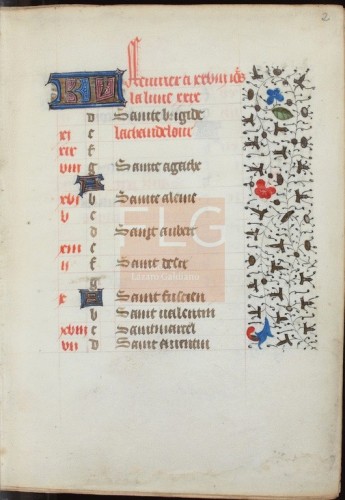 2
Feurier a xxviii iors
la lune xxix
KL
d Sainte brigide
xi e la chandelour
xix f
viii g Sainte agathe
A
xvi b Sainte aleine
v c
d Saint aubert
xiii e
ii f Saint desir
g
x A Saint fuscien
b Saint valentin
xviii c Saint marcel
vii d Saint
FLG
Lázaro Galdiano